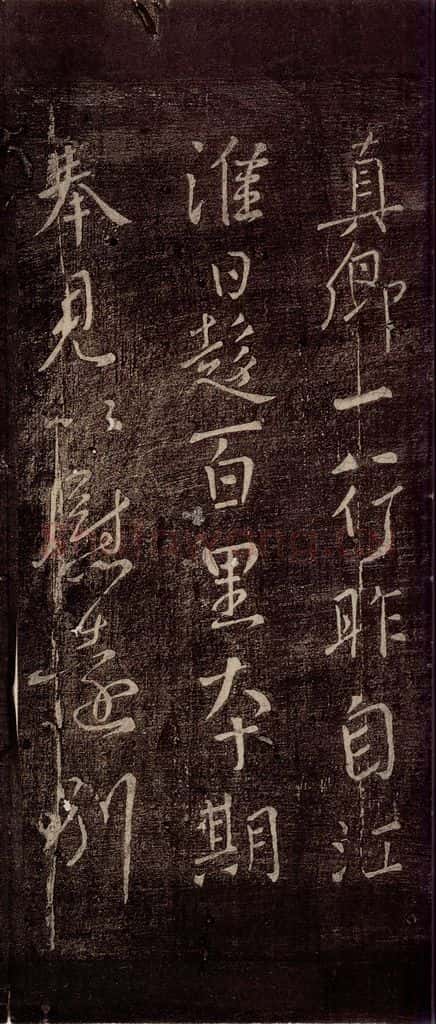 真卿一行昨自江
淮日趍百里夲期
奉見以慰遠別